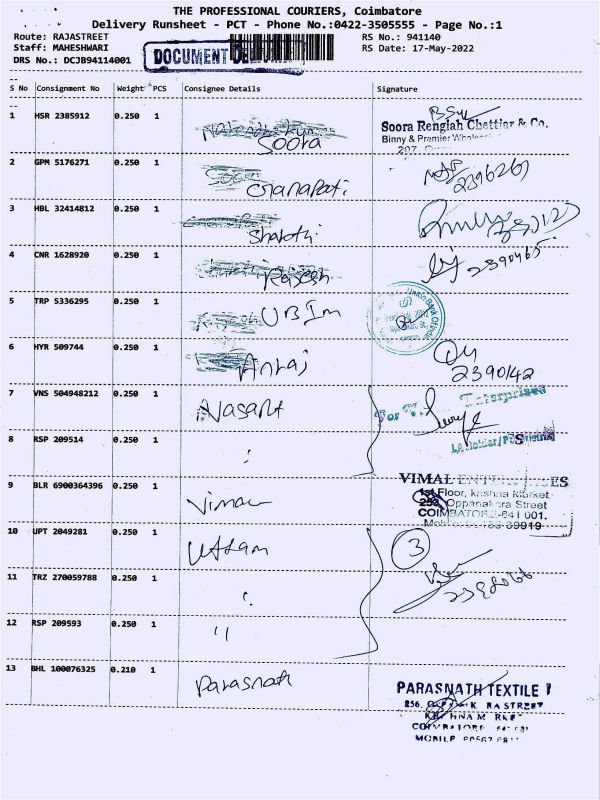 THE PROFESSIONAL COURIERS, Coimbatore
Delivery Runsheet - PCT - Phone No.:0422-3505555 - Page No.:1
Route: RAJASTREET RS No.: 941140
Staff: MAHESHWARI RS Date: 17-May-2022
DRS No.: DCJB94114001 DOCUMENT
S No Consignment No Weight PCS Consignee Details Signature
1 HSR 2385912 0.250 1 Soora
Soora Rengiah Chettiar & Co.
Binny & Premier
2 GPM 5176271 0.250 1 Ganapati 2396267
3 HBL 32414812 0.250 1 Shakthi
4 CNR 1628920 0.250 1 Rajesh 2390465
5 TRP 5336295 0.250 1 UBIm
6 HYR 509744 0.250 1 2390142
7 VNS 504948212 0.250 1 Vasant
For Enterprises
8 RSP 209514 0.250 1
9 BLR 6900364396 0.250 1 Vimal
VIMAL ENTERPRISES
1st Floor, Krishna Market
253, Oppanakara Street
COIMBATORE-641 001.
10 UPT 2049281 0.250 1 Uttam 3
11 TRZ 270059788 0.250 1
12 RSP 209593 0.250 1 "
13 BHL 100076325 0.210 1 Parasnath
PARASNATH TEXTILE